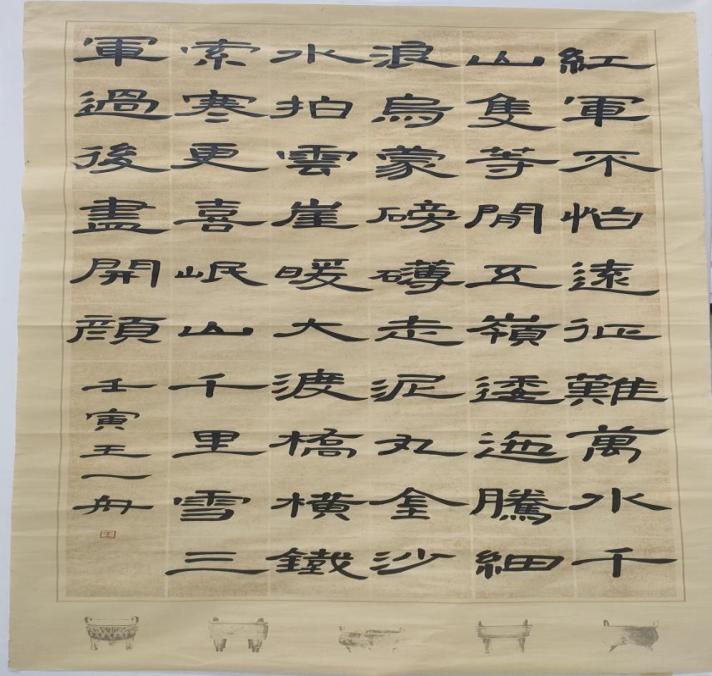 紅軍不怕遠征難萬水千
山隻等閒五嶺逶迤騰細
浪烏蒙磅礴走泥丸金沙
水拍雲崖暖大渡橋橫鐵
索寒更喜岷山千里雪三
軍過後盡開顏
壬寅王一舟